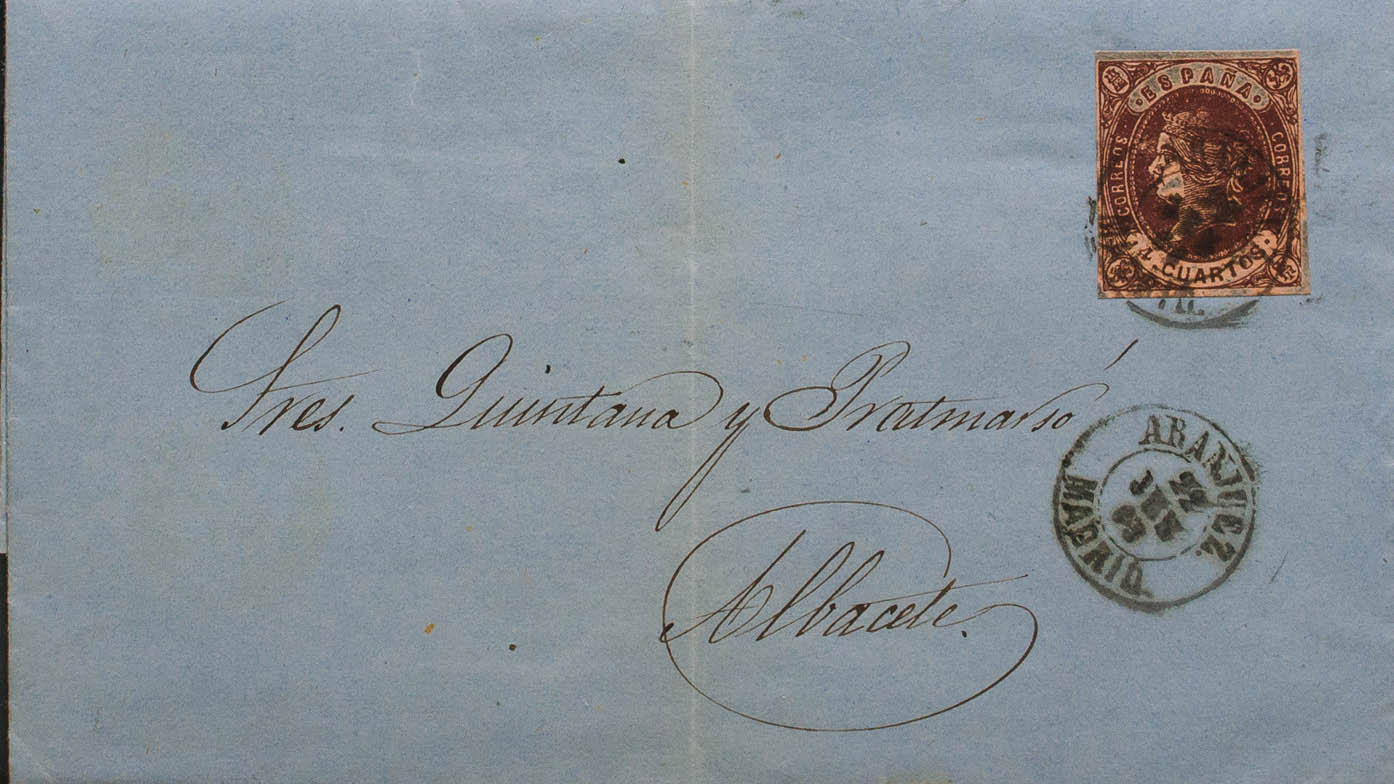 ·ESPAÑA·
CORREOS
CORREOS
4 CUARTOS·
Sres. Quintana y Pratmarsó
ARANJUEZ.
MADRID
Albacete.